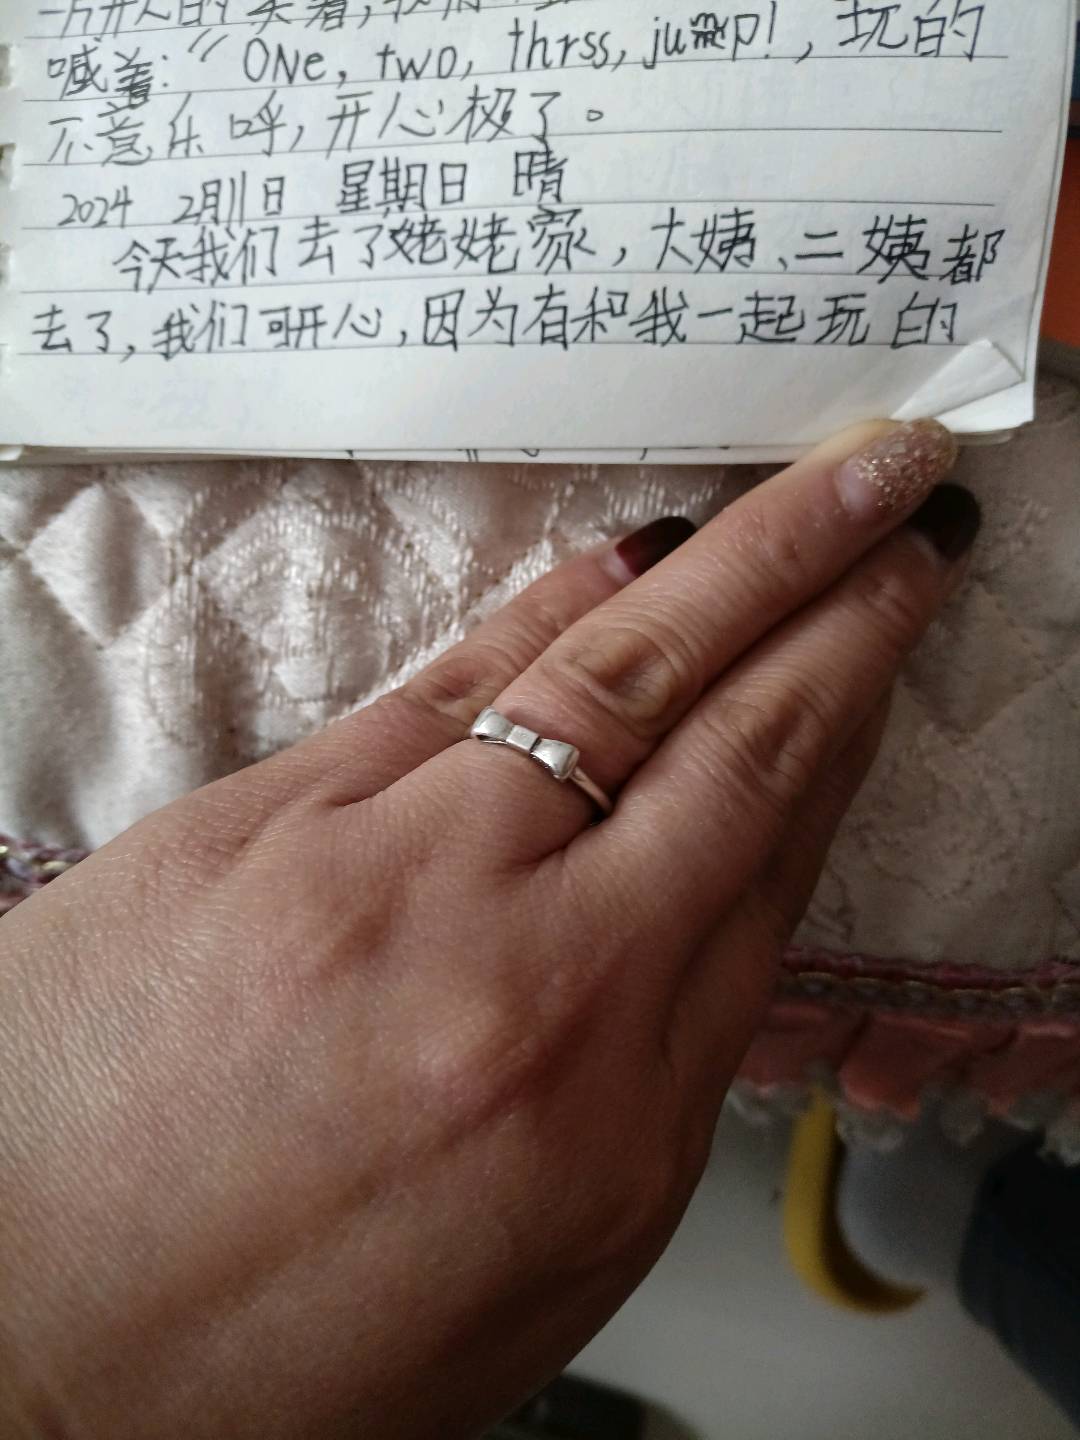 喊着:“ONe, two, thrss, jump!, 玩的
不意乐呼, 开心极了。
2024 2月11日 星期日 晴
今天我们去了姥姥家, 大姨、二姨都
去了, 我们可开心, 因为有和我一起玩的